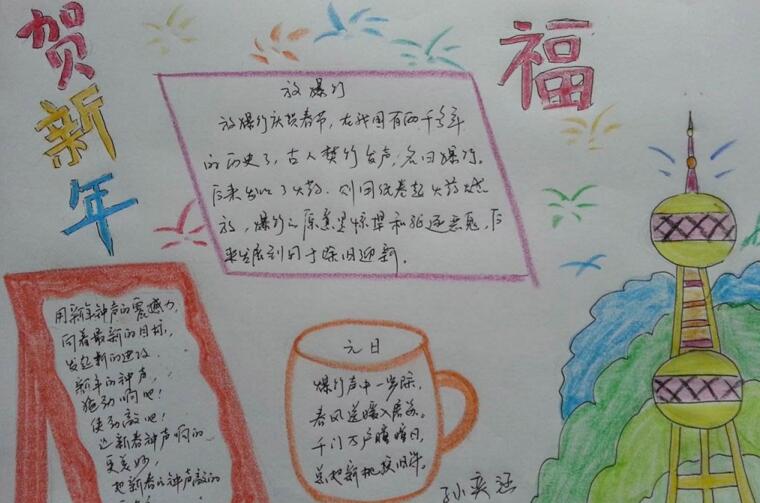 贺新年
福
放爆竹
放爆竹庆贺春节,在我国有两千多年
的历史了,古人焚竹发声,名曰爆竹。
后来发明了火药,则用纸卷起火药燃
放,爆竹之原意是惊惮和驱逐恶鬼,后
来发展到用于除旧迎新。
用新年钟声的震撼力,
向着最新的目标,
发起新的进攻
新年的钟声,
敲动啊吧!
使劲敲吧!
让新春钟声响的
更美妙,
把新春的钟声敲的
元日
爆竹声中一岁除,
春风送暖入屠苏。
千门万户曈曈日,
总把新桃换旧符。